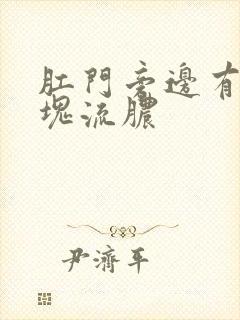 肛門旁邊有
塊流膿
尹濟平